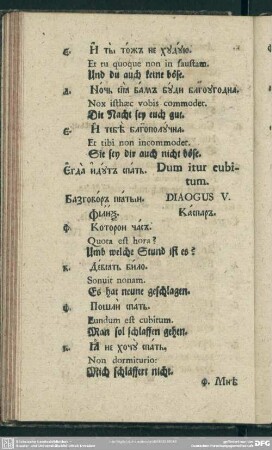 є. И ты тожъ не худую.
Et tu quoque non in faustam.
Und du auch keine böse.
д. Ночь сїѧ вамъ буди благоугодна.
Nox isthæc vobis commodet.
Die Nacht sey euch gut.
є. И тебѣ благополучна.
Et tibi non incommodet.
Sie sey dir auch nicht böse.
Егда идутъ спать. Dum itur cubi-
tum.
Разговоръ пѧтый. DIAOGUS V.
Каспаръ.
ф. Которой часъ.
Quota est hora?
Umb welche Stund ist es?
к. Девѧть било.
Sonuit nonam.
Es hat neune geschlagen.
ф. Пошли спать.
Eundum est cubitum.
Man sol schlaffen gehen.
к. Ꙗ не хочу спать.
Non dormiturio:
Mich schläffert nicht.
ф. Мнѣ